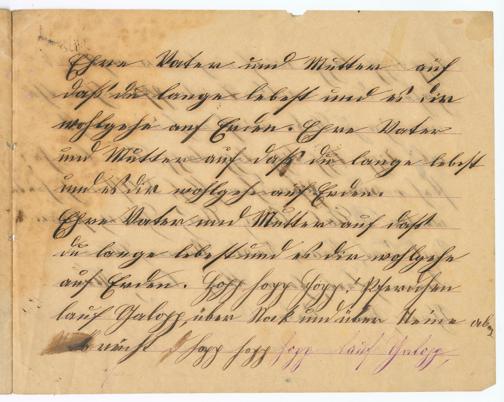 Ehre Vater und Mutter auf
daß du lange lebest und es dir
wohlgehe auf Erden. Ehre Vater
und Mutter auf daß du lange lebest
und es dir wohlgehe auf Erden.
Ehre Vater und Mutter auf daß
du lange lebest und es dir wohlgehe
auf Erden. Hopp hopp hopp! Pferdchen
lauf Galopp über Stock und über Steine aber
hopp hopp hopp lauf Galopp,